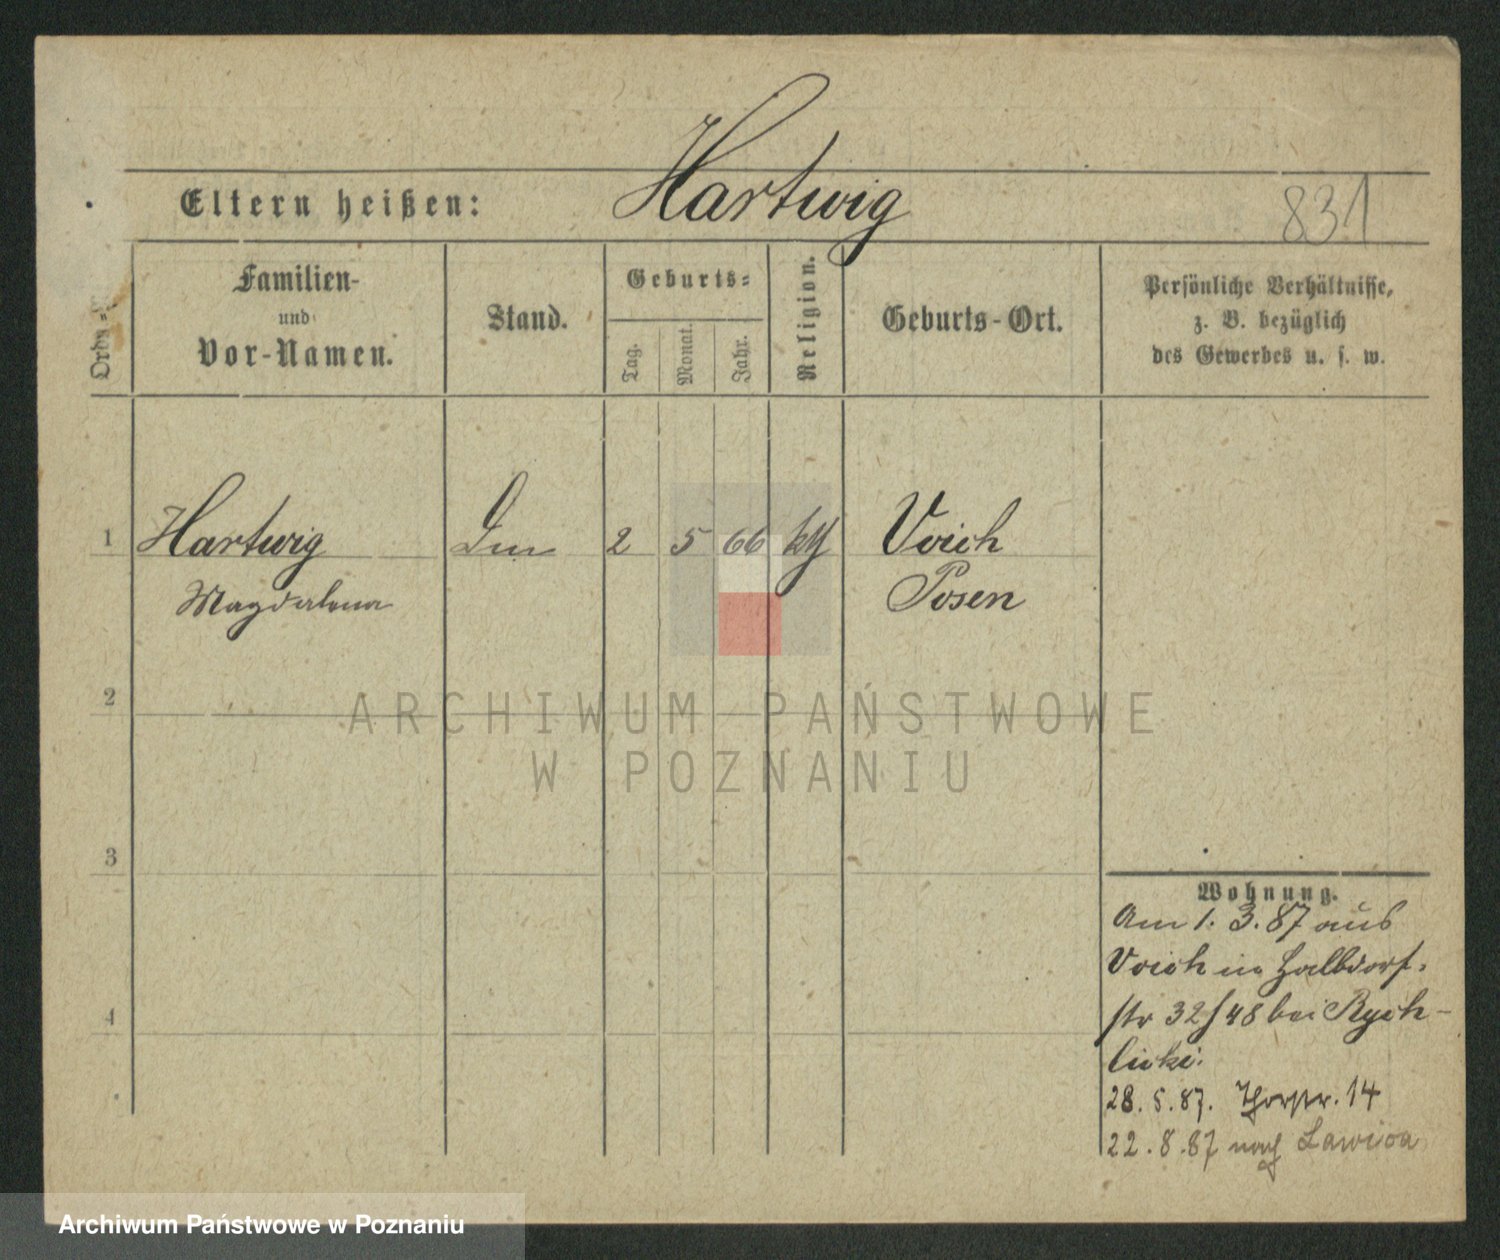 Eltern heißen: Hartwig 831
Ordn.=
Familien-
und
Vor-Namen.
Stand.
Geburts=
Tag.
Monat.
Jahr.
Religion.
Geburts-Ort.
Persönliche Verhältnisse,
z. B. bezüglich
des Gewerbes u. s. w.
1 Hartwig 2 5 66 Posen
Magdalena
2
ARCHIWUM PAŃSTWOWE
W POZNANIU
3
Wohnung.
Am 1. 3. 87 aus
in Halbdorf-
str 32/48 bei Rych-
licki.
4
28. 5. 87. Thorstr. 14
22. 8. 87 nach Lawica
Archiwum Państwowe w Poznaniu